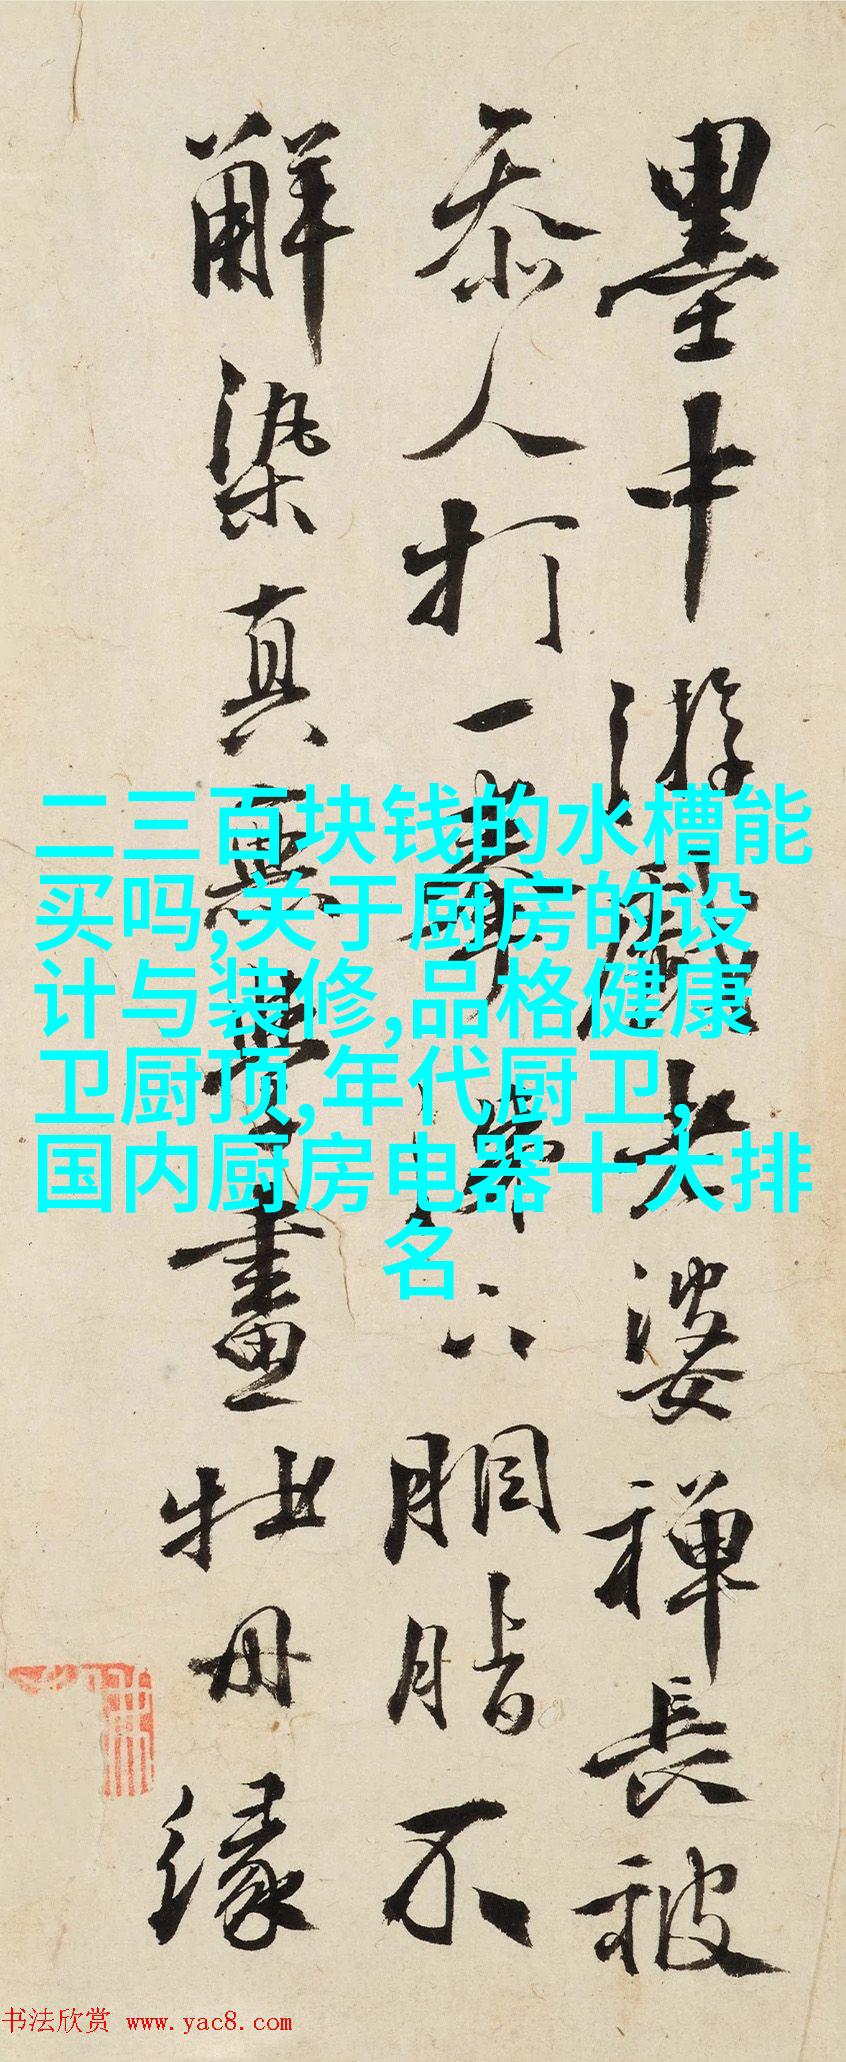 墨中游戲老婆禪長被
参人打一拳涕下胭脂不
解染真無學畫牡丹緣
二三百块钱的水槽能
买吗,关于厨房的设
计与装修,品格健康
卫厨顶,年代厨卫,
国内厨房电器十大排
名
书法欣赏 www.yac8.com